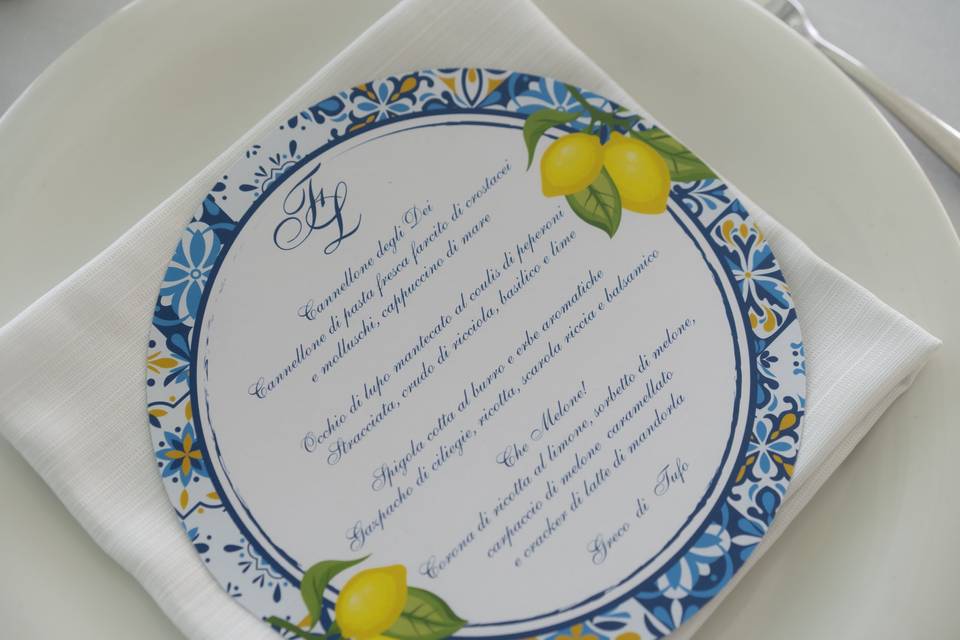 FL
Cannellone degli Dei
Cannellone di pasta fresca farcito di crostacei
e molluschi, cappuccino di mare
Occhio di lupo mantecato al coulis di peperoni
Stracciata, crudo di ricciola, basilico e lime
Spigola cotta al burro e erbe aromatiche
Gazpacho di ciliegie, ricotta, scarola riccia e balsamico
Che Melone!
Corona di ricotta al limone, sorbetto di melone,
carpaccio di melone caramellato
e cracker di latte di mandorla
Greco di Tufo